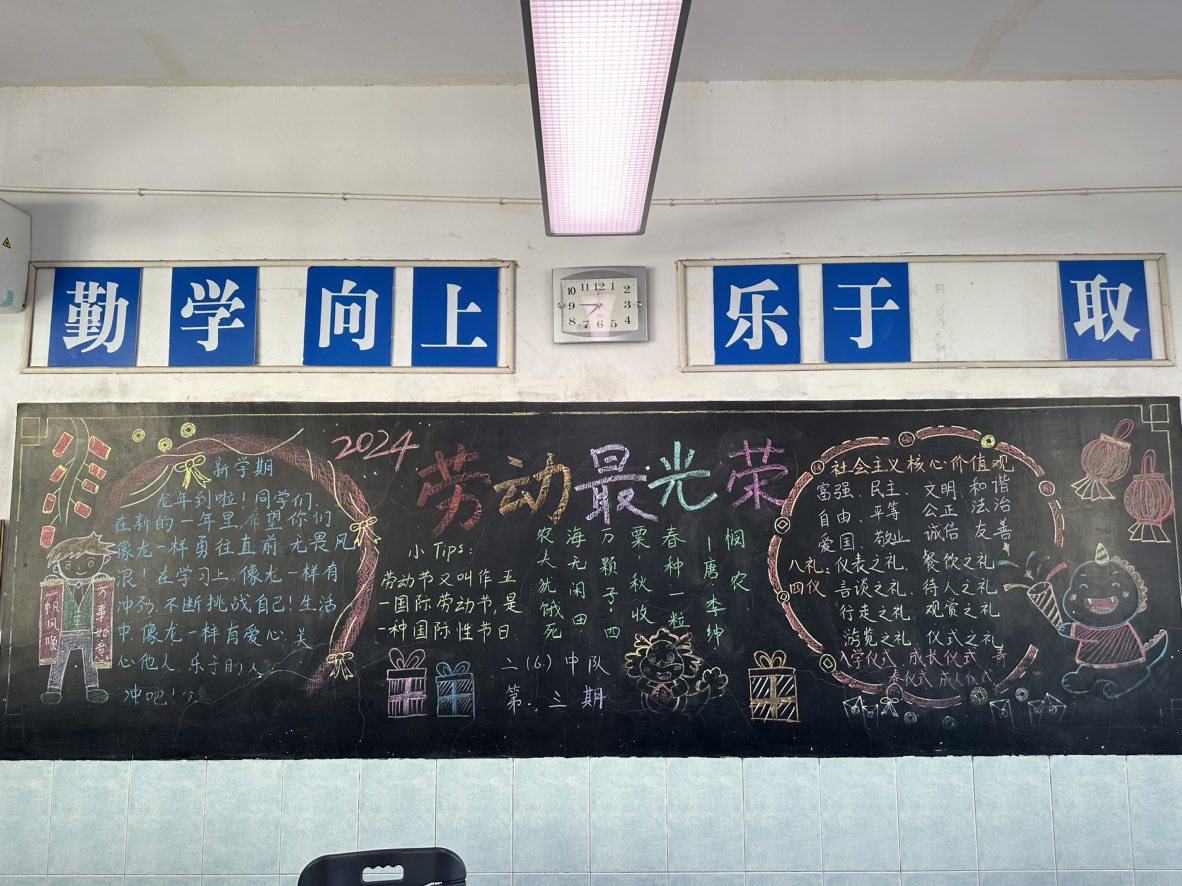 勤学向上
乐于 取
11 12 1
10 2
9 3
8 4
7 6 5
2024
劳动最光荣
新学期
龙年到啦!同学们,
在新的一年里,希望你们
像龙一样勇往直前,无畏风
浪!在学习上,像龙一样有
冲劲,不断挑战自己!生活
中,像龙一样有爱心,关
心他人,乐于
冲吧!
一帆风顺
万事如意
小Tips:
劳动节又叫作五
一国际劳动节,是
一种国际性节日.
悯农
—唐 李绅
春种一粒
粟,秋收
万颗子。四
海无闲田
农夫犹饿死
二(6)中队
第三期
社会主义核心价值观
富强、民主、文明、和谐
自由、平等 公正 法治
爱国 敬业 诚信 友善
八礼:仪表之礼、餐饮之礼
四仪 言谈之礼、待人之礼
行走之礼、观赏之礼
游览之礼、仪式之礼
入学仪式 成长仪式 青
春仪式 成人仪式